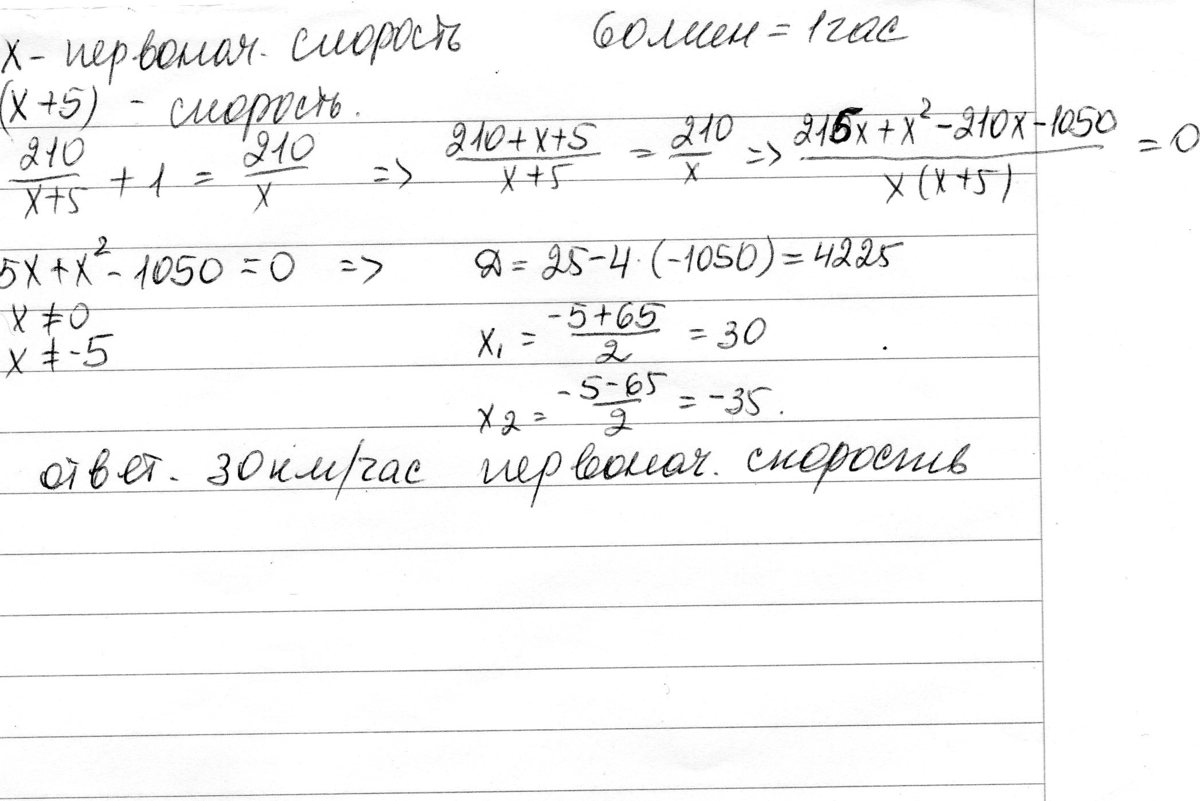 x - первонач. скорость 60мин = 1час
(x+5) - скорость.
210/(x+5) + 1 = 210/x => (210+x+5)/(x+5) = 210/x => (215x+x²-210x-1050)/(x(x+5)) = 0
5x+x²-1050=0 => D = 25-4·(-1050)=4225
x ≠ 0
x ≠ -5
x₁ = (-5+65)/2 = 30
x₂ = (-5-65)/2 = -35.
ответ. 30км/час первонач. скорость